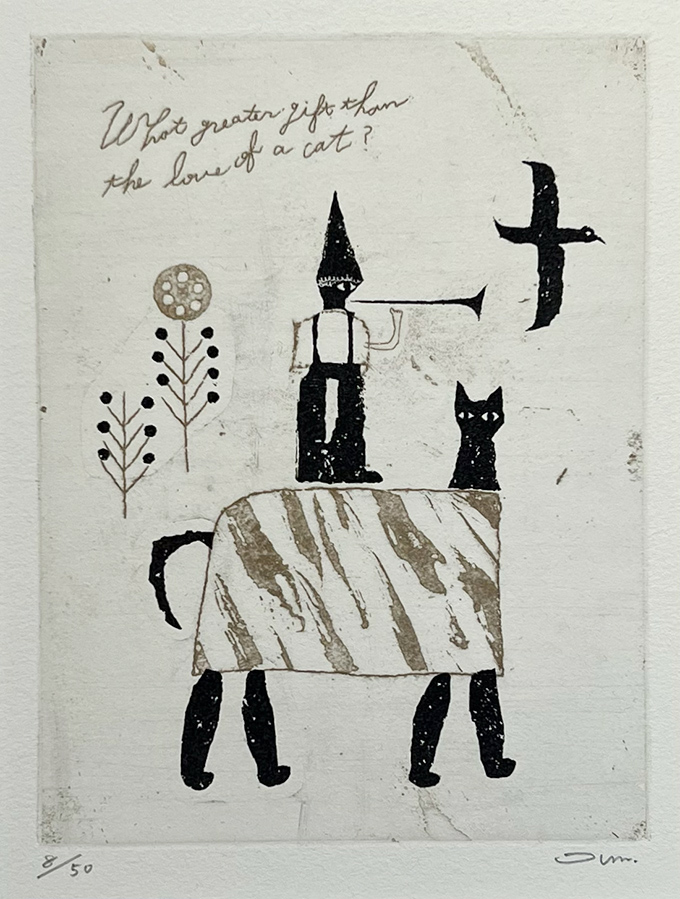 What greater gift than
the love of a cat?
8/50